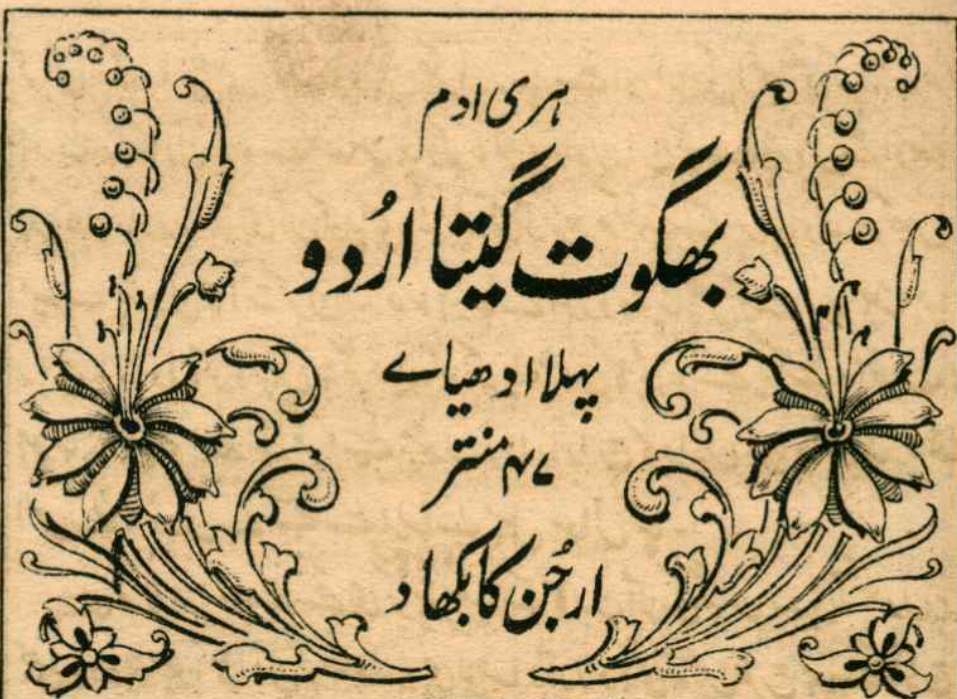 ہری اوم
بھگوت گیتا اُردو
پہلا ادھیاے
۴۷ منتر
ارجُن کا بکھاد